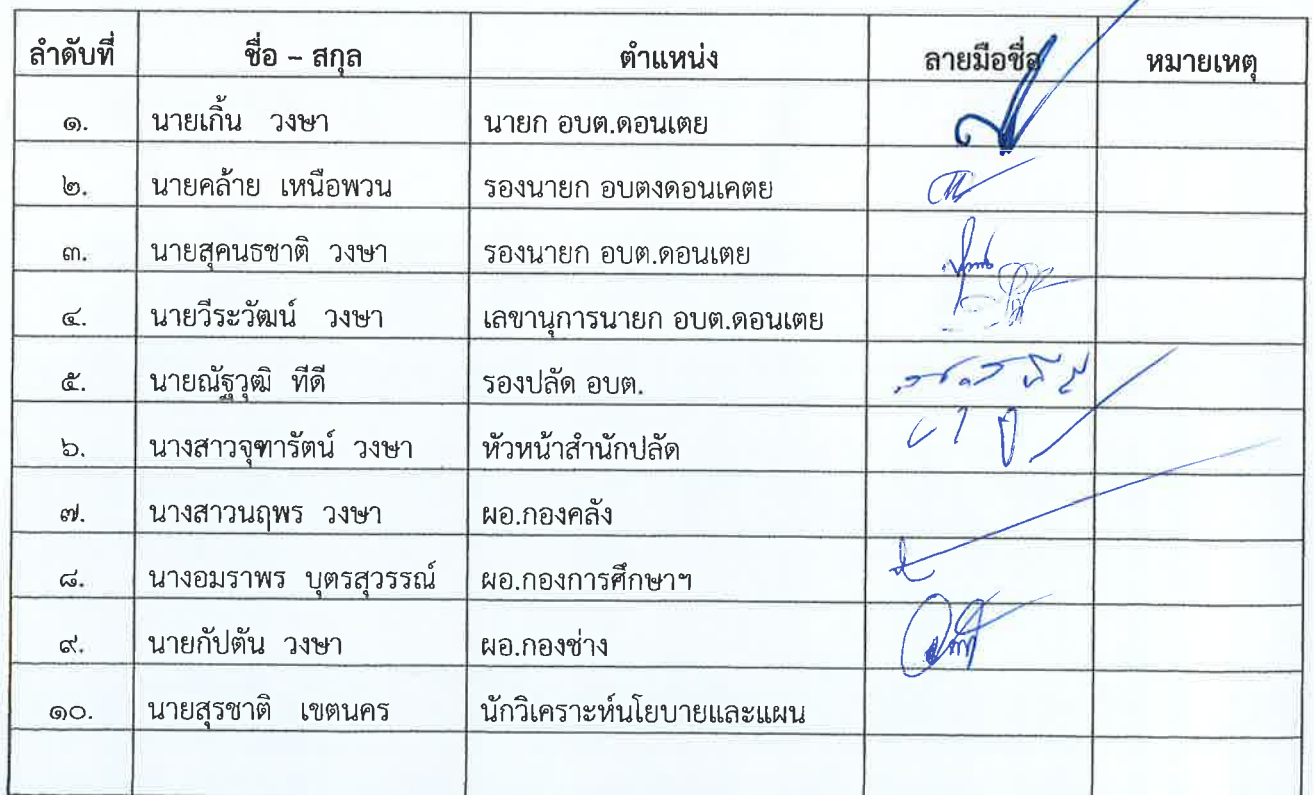 ลำดับที่ ชื่อ – สกุล ตำแหน่ง ลายมือชื่อ หมายเหตุ
๑. นายเกิ้น วงษา นายก อบต.ดอนเตย
๒. นายคล้าย เหนือพวน รองนายก อบตงดอนเคตย
๓. นายสุคนธชาติ วงษา รองนายก อบต.ดอนเตย
๔. นายวีระวัฒน์ วงษา เลขานุการนายก อบต.ดอนเตย
๕. นายณัฐวุฒิ ทีดี รองปลัด อบต.
๖. นางสาวจุฑารัตน์ วงษา หัวหน้าสำนักปลัด
๗. นางสาวนฤพร วงษา ผอ.กองคลัง
๘. นางอมราพร บุตรสุวรรณ์ ผอ.กองการศึกษาฯ
๙. นายกัปตัน วงษา ผอ.กองช่าง
๑๐. นายสุรชาติ เขตนคร นักวิเคราะห์นโยบายและแผน